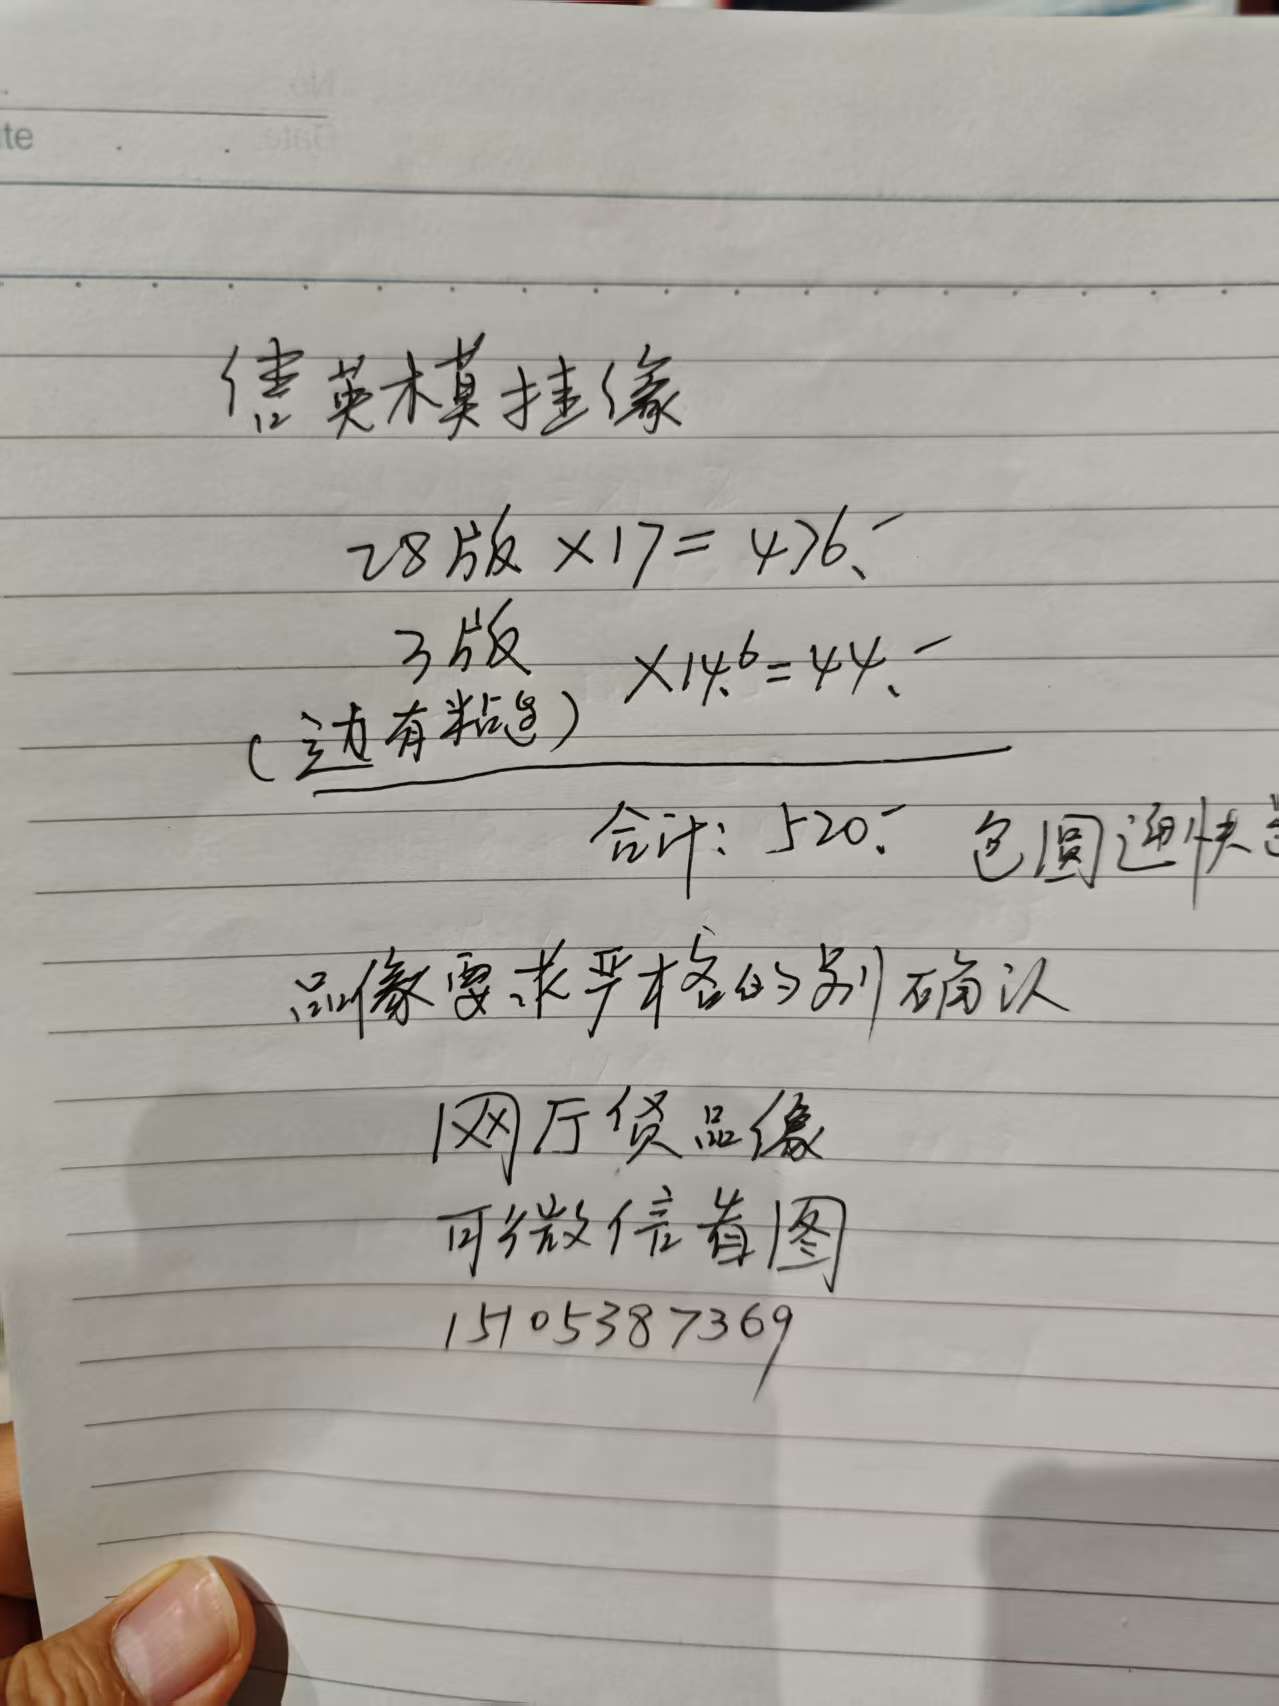 te
No
Date
英模挂像
28版×17=476.-
3版 ×14.6=44.-
(边有粘连)
合计: 520.- 包圆通快
品像要求严格的别确认
网厅货品像
可微信看图
15105387369